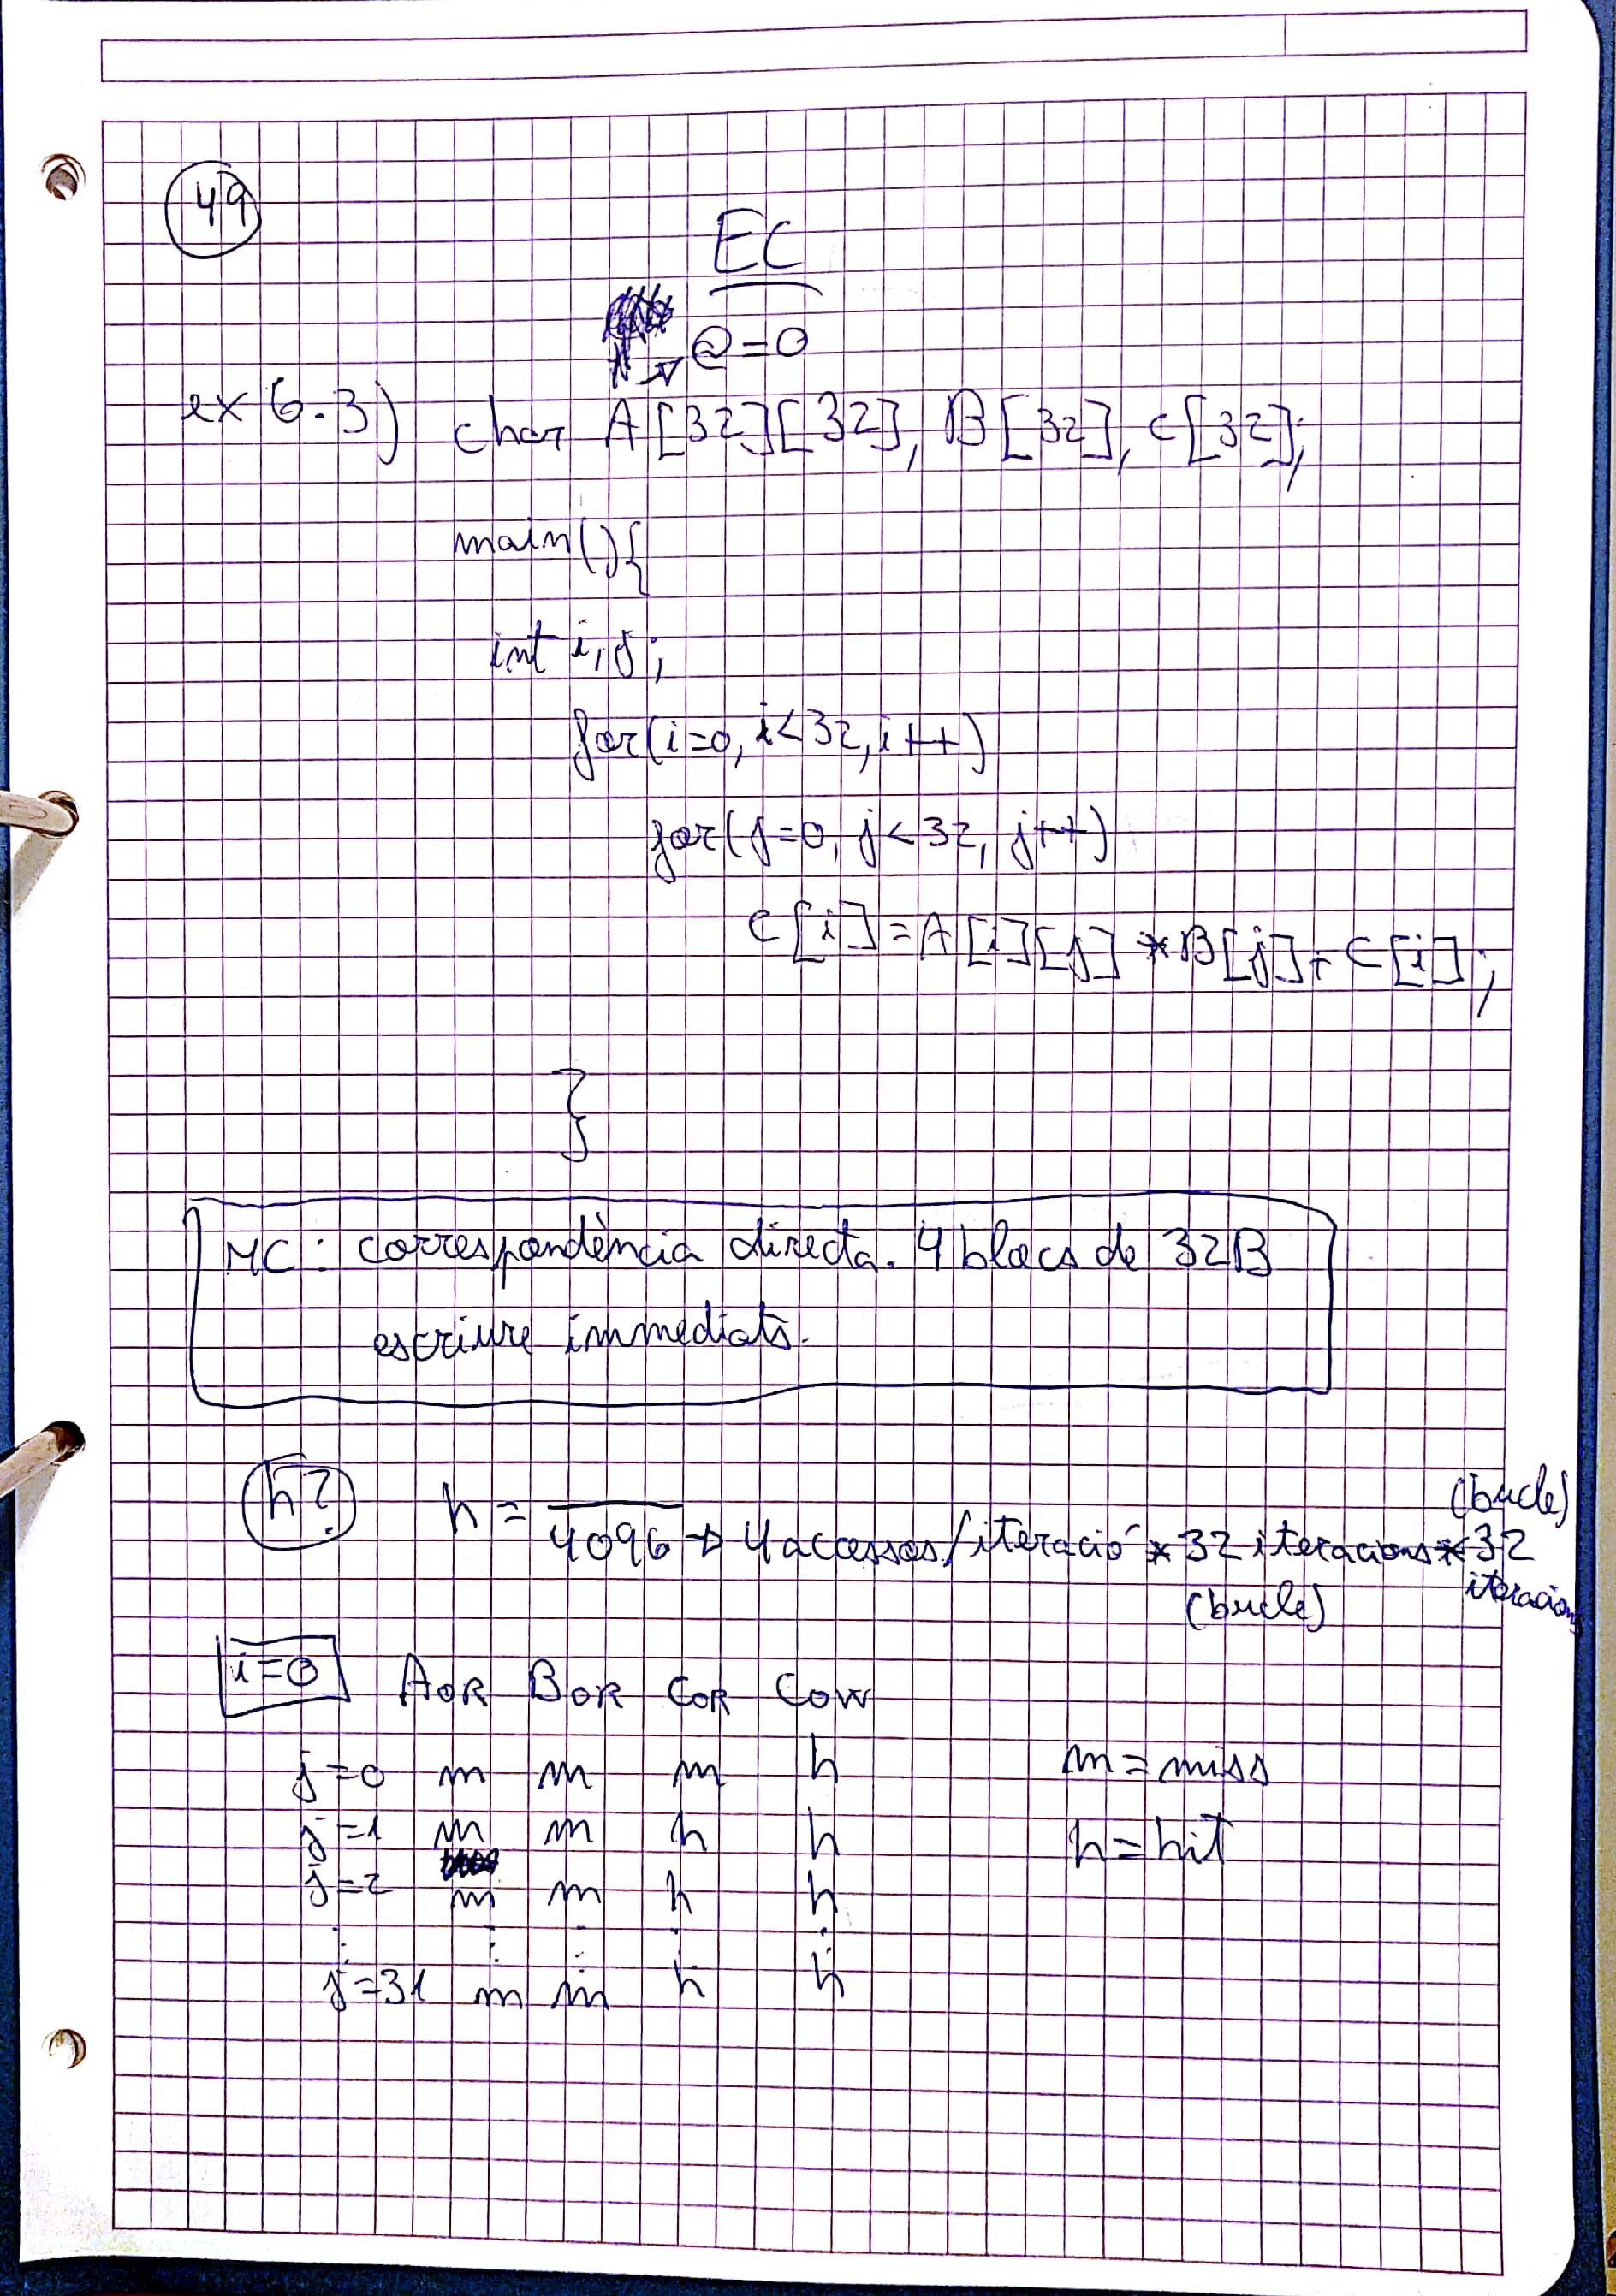 49
EC
@=0
ex 6.3) char A[32][32], B[32], C[32];
main(){
int i,j;
for(i=0, i<32, i++)
for(j=0, j<32, j++)
C[i]=A[i][j]*B[j]+C[i];
}
MC: correspondència directa. 4 blocs de 32B
escriure immediats.
h? h = ―/4096 → 4 accessos/iteració * 32 iteracions (bucle) * 32 iteracions (bucle)
i=0 A0R B0R C0R C0W
j=0 m m m h m=miss
j=1 m m h h h=hit
j=2 m m h h
⋮ ⋮ ⋮ ⋮ ⋮
j=31 m m h h